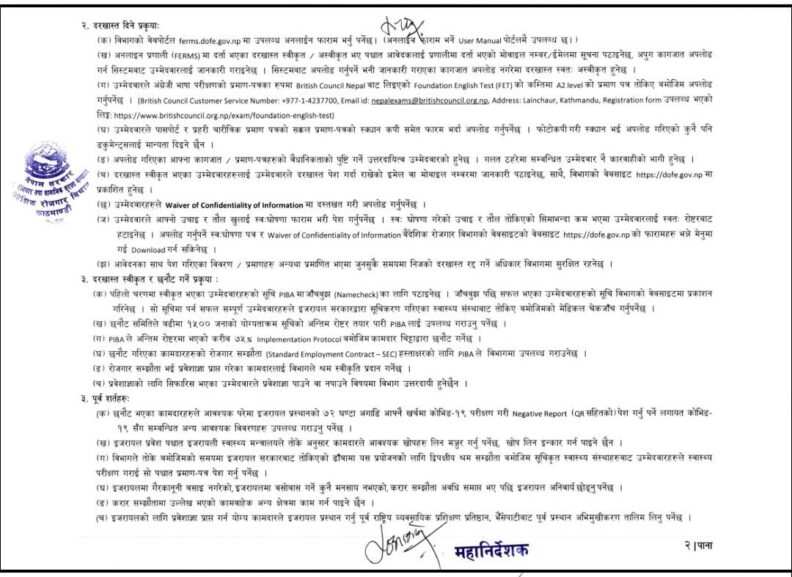 २. दरखास्त दिने प्रकृयाः
(क) विभागको वेवपोर्टल ferms.dofe.gov.np मा उपलब्ध अनलाईन फाराम भर्नु पर्नेछ। (अनलाईन फाराम भर्ने User Manual पोर्टलमै उपलब्ध छ।)
(ख) अनलाइन प्रणाली (FERMS) मा दर्ता भएका दरखास्त स्वीकृत / अस्वीकृत भए पश्चात आवेदकलाई प्रणालीमा दर्ता भएको मोबाइल नम्बर/ईमेलमा सूचना पठाइनेछ, अपुग कागजात अपलोड
गर्न सिस्टमबाट उम्मेदवारलाई जानकारी गराइनेछ । सिस्टमबाट अपलोड गर्नुपर्ने भनी जानकारी गराएका कागजात अपलोड नगरेमा दरखास्त स्वतः अस्वीकृत हुनेछ ।
(ग) उम्मेदवारले अंग्रेजी भाषा परीक्षणको प्रमाण-पत्रका रूपमा British Council Nepal बाट लिइएको Foundation English Test (FET) को कम्तिमा A2 level को प्रमाण पत्र तोकिए बमोजिम अपलोड
गर्नुपर्नेछ । (British Council Customer Service Number: +977-1-4237700, Email id: nepalexams@britishcouncil.org.np, Address: Lainchaur, Kathmandu, Registration form उपलब्ध भएको
लिङ्कः https://www.britishcouncil.org.np/exam/foundation-english-test)
(घ) उम्मेदवारले पासपोर्ट र प्रहरी चारीत्रिक प्रमाण पत्रको सक्कल प्रमाण-पत्रको स्क्यान कपी समेत फारम भर्दा अपलोड गर्नुपर्नेछ । फोटोकपी गरी स्क्यान भई अपलोड गरिएको कुनै पनि
डकुमेन्ट्सलाई मान्यता दिइने छैन ।
(ङ) अपलोड गरिएका आफ्ना कागजात / प्रमाण-पत्रहरुको बैधानिकताको पुष्टि गर्ने उत्तरदायित्व उम्मेदवारको हुनेछ । गलत ठहरेमा सम्बन्धित उम्मेदवार नै कारवाहीको भागी हुनेछ ।
(च) दरखास्त स्वीकृत भएका उम्मेदवारहरुलाई उम्मेदवारले दरखास्त पेश गर्दा राखेको इमेल वा मोबाइल नम्बरमा जानकारी पठाइनेछ, साथै, विभागको वेबसाइट https://dofe.gov.np मा
प्रकाशित हुनेछ ।
(छ) उम्मेदवारहरुले Waiver of Confidentiality of Information मा दस्तखत गरी अपलोड गर्नुपर्नेछ ।
(ज) उम्मेदवारले आफ्नो उचाइ र तौल खुलाई स्वःघोषणा फाराम भरी पेश गर्नुपर्नेछ । स्वः घोषणा गरेको उचाइ र तौल तोकिएको सिमाभन्दा कम भएमा उम्मेदवारलाई स्वतः रोष्टरबाट
हटाइनेछ । अपलोड गर्नुपर्ने स्वःघोषणा पत्र र Waiver of Confidentiality of Information बैदेशिक रोजगार विभागको वेबसाइटको वेबसाइट https://dofe.gov.np को फारामहरु भन्ने मेनुमा
गई Download गर्न सकिनेछ ।
(झ) आवेदनका साथ पेश गरिएका विवरण / प्रमाणहरु अन्यथा प्रमाणित भएमा जुनसुकै समयमा निजको दरखास्त रद्द गर्ने अधिकार विभागमा सुरक्षित रहनेछ ।
३. दरखास्त स्वीकृत र छनौट गर्ने प्रकृया :
(क) पहिलो चरणमा स्वीकृत भएका उम्मेदवारहरुको सूचि PIBA मा जाँचबुझ (Namecheck) का लागि पठाइनेछ । जाँचबुझ पछि सफल भएका उम्मेदवारहरुको सूचि विभागको वेबसाइटमा प्रकाशन
गरिनेछ । सो सूचिमा पर्न सफल सम्पूर्ण उम्मेदवारहरुले इजरायल सरकारद्वारा सूचिकरण गरिएका स्वास्थ्य संस्थाबाट तोकिए बमोजिमको मेडिकल चेकजाँच गर्नुपर्नेछ ।
(ख) छनौट समितिले बढीमा १५०० जनाको योग्यताक्रम सूचिको अन्तिम रोष्टर तयार पारी PIBA लाई उपलब्ध गराउनु पर्नेछ ।
(ग) PIBA ले अन्तिम रोष्टरमा भएको करीव ७५% Implementation Protocol बमोजिम कामदार चिठ्ठाद्वारा छनौट गर्नेछ ।
(घ) छनौट गरिएका कामदारहरुको रोजगार सम्झौता (Standard Employment Contract – SEC) हस्ताक्षरको लागि PIBA ले विभागमा उपलब्ध गराउनेछ ।
(ङ) रोजगार सम्झौता भई प्रवेशाज्ञा प्राप्त गरेका कामदारलाई विभागले श्रम स्वीकृति प्रदान गर्नेछ ।
(च) प्रवेशाज्ञाको लागि सिफारिस भएका उम्मेदवारले प्रवेशाज्ञा पाउने वा नपाउने विषयमा विभाग उत्तरदायी हुनेछैन ।
३. पूर्व शर्तहरुः
(क) छनौट भएका कामदारहरुले आवश्यक परेमा इजरायल प्रस्थानको ७२ घण्टा अगाडि आफ्नै खर्चमा कोभिड-१९ परीक्षण गरी Negative Report (QR सहितको) पेश गर्नु पर्ने लगायत कोभिड-
१९ सँग सम्बन्धित अन्य आवश्यक विवरणहरु उपलब्ध गराउनु पर्नेछ ।
(ख) इजरायल प्रवेश पश्चात इजरायली स्वास्थ्य मन्त्रालयले तोके अनुसार कामदारले आवश्यक खोपहरु लिन मञ्जुर गर्नु पर्नेछ, खोप लिन इन्कार गर्न पाइने छैन ।
(ग) विभागले तोके बमोजिमको समयमा इजरायल सरकारबाट तोकिएको ढाँचामा यस प्रयोजनको लागि द्विपक्षीय श्रम सम्झौता बमोजिम सूचिकृत स्वास्थ्य संस्थाहरुबाट उम्मेदवारहरुले स्वास्थ्य
परीक्षण गराई सो पश्चात प्रमाण-पत्र पेश गर्नु पर्नेछ ।
(घ) इजरायलमा गैरकानूनी बसाइ नगरेको, इजरायलमा बसोवास गर्ने कुनै मनसाय नभएको, करार सम्झौता अवधि समाप्त भए पछि इजरायल अनिवार्य छोड्नु पर्नेछ ।
(ङ) करार सम्झौतामा उल्लेख भएको कामबाहेक अन्य क्षेत्रमा काम गर्न पाइने छैन ।
(च) इजरायलको लागि प्रवेशाज्ञा प्राप्त गर्न योग्य कामदारले इजरायल प्रस्थान गर्नु पूर्व राष्ट्रिय व्यवसायिक प्रशिक्षण प्रतिष्ठान, भैंसेपाटीबाट पूर्व प्रस्थान अभिमुखीकरण तालिम लिनु पर्नेछ ।
नेपाल सरकार
वैदेशिक रोजगार विभाग
काठमाण्डौ
महानिर्देशक
२|पाना